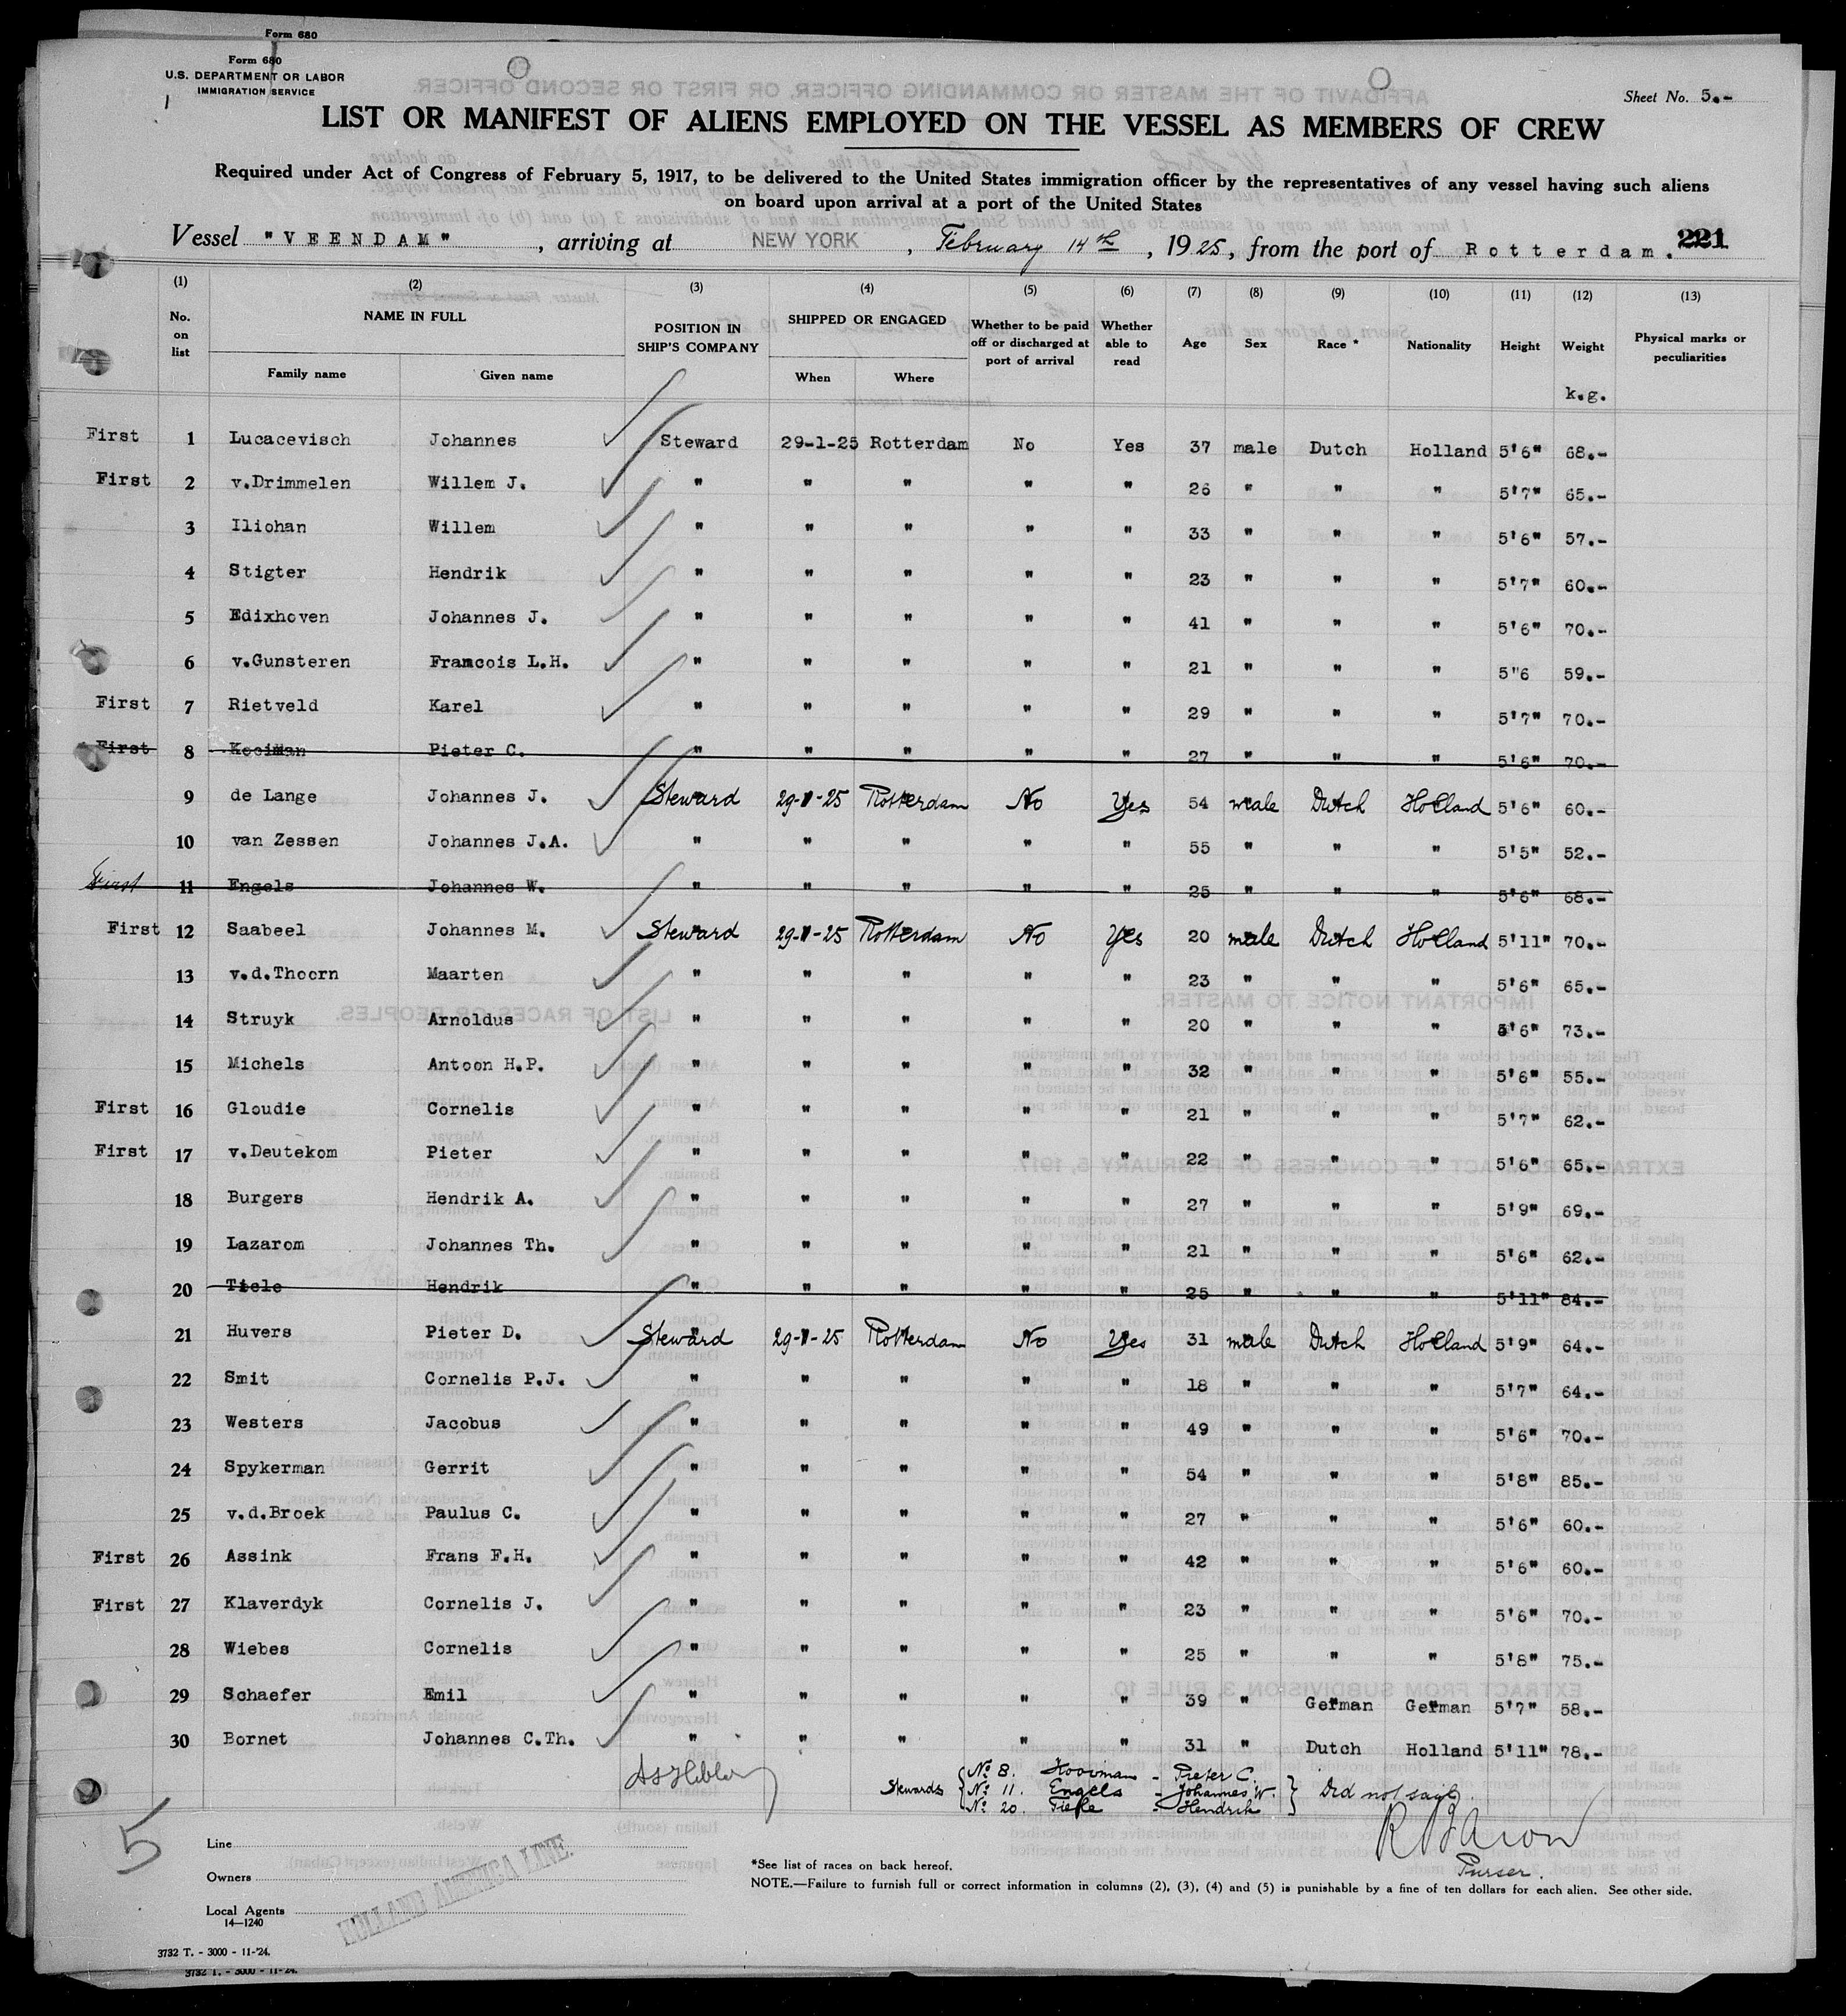 Form 680
Form 680
U.S. DEPARTMENT OR LABOR
IMMIGRATION SERVICE
Sheet No. 5.-
LIST OR MANIFEST OF ALIENS EMPLOYED ON THE VESSEL AS MEMBERS OF CREW
Required under Act of Congress of February 5, 1917, to be delivered to the United States immigration officer by the representatives of any vessel having such aliens
on board upon arrival at a port of the United States
Vessel "VEENDAM", arriving at NEW YORK, February 14th, 1925, from the port of Rotterdam. 221
(1) (2) (3) (4) (5) (6) (7) (8) (9) (10) (11) (12) (13)
No. on list NAME IN FULL Family name Given name POSITION IN SHIP'S COMPANY SHIPPED OR ENGAGED When Where Whether to be paid off or discharged at port of arrival Whether able to read Age Sex Race * Nationality Height Weight Physical marks or peculiarities
k.g.
First 1 Lucacevisch Johannes Steward 29-1-25 Rotterdam No Yes 37 male Dutch Holland 5'6" 68.-
First 2 v.Drimmelen Willem J. " " " " " 26 " " " 5'7" 65.-
3 Iliohan Willem " " " " " 33 " " " 5'6" 57.-
4 Stigter Hendrik " " " " " 23 " " " 5'7" 60.-
5 Edixhoven Johannes J. " " " " " 41 " " " 5'6" 70.-
6 v.Gunsteren Francois L.H. " " " " " 21 " " " 5"6 59.-
First 7 Rietveld Karel " " " " " 29 " " " 5'7" 70.-
First 8 Kooiman Pieter C. " " " " " 27 " " " 5'6" 70.-
9 de Lange Johannes J. Steward 29-1-25 Rotterdam No Yes 54 male Dutch Holland 5'6" 60.-
10 van Zessen Johannes J.A. " " " " " 55 " " " 5'5" 52.-
First 11 Engels Johannes W. " " " " " 25 " " " 5'6" 68.-
First 12 Saabeel Johannes M. Steward 29-1-25 Rotterdam No Yes 20 male Dutch Holland 5'11" 70.-
13 v.d.Thoorn Maarten " " " " " 23 " " " 5'6" 65.-
14 Struyk Arnoldus " " " " " 20 " " " 5'6" 73.-
15 Michels Antoon H.P. " " " " " 32 " " " 5'6" 55.-
First 16 Gloudie Cornelis " " " " " 21 " " " 5'7" 62.-
First 17 v.Deutekom Pieter " " " " " 22 " " " 5'6" 65.-
18 Burgers Hendrik A. " " " " " 27 " " " 5'9" 69.-
19 Lazarom Johannes Th. " " " " " 21 " " " 5'6" 62.-
20 Tiele Hendrik " " " " " 25 " " " 5'11" 84.-
21 Huvers Pieter D. Steward 29-1-25 Rotterdam No Yes 31 male Dutch Holland 5'9" 64.-
22 Smit Cornelis P.J. " " " " " 18 " " " 5'7" 64.-
23 Westers Jacobus " " " " " 49 " " " 5'6" 70.-
24 Spykerman Gerrit " " " " " 54 " " " 5'8" 85.-
25 v.d.Broek Paulus C. " " " " " 27 " " " 5'6" 60.-
First 26 Assink Frans F.H. " " " " " 42 " " " 5'6" 60.-
First 27 Klaverdyk Cornelis J. " " " " " 23 " " " 5'6" 70.-
28 Wiebes Cornelis " " " " " 25 " " " 5'8" 75.-
29 Schaefer Emil " " " " " 39 " German German 5'7" 58.-
30 Bornet Johannes C.Th. " " " " " 31 " Dutch Holland 5'11" 78.-
Stewards No 8. Kooiman - Pieter C.
No 11. Engels - Johannes W. Did not sail.
No 20. Tiele - Hendrik
Purser.
5
Line
Owners
Local Agents
HOLLAND AMERICA LINE.
14—1240
*See list of races on back hereof.
NOTE.—Failure to furnish full or correct information in columns (2), (3), (4) and (5) is punishable by a fine of ten dollars for each alien. See other side.
3732 T. - 3000 - 11-'24.
3732 T. - 3000 - 11-'24.